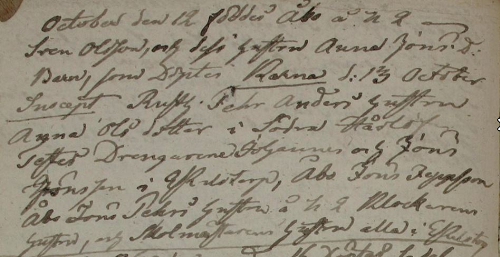 October den 12 föddes Åbo å N 2
Sven Olsson, och dess hustru Anna Jöns D.
Barn, som döptes Karna d: 13 October
Suscept Rusth. Pehr Anders hustru
Anna Ols dotter i Södra
Testes Drengarene Johannes och Jöns
Jönsson i, Åbo Jöns Jeppsson
Åbo Jöns Pehrs hustru å N 2 Klockarens
hustru, och Skolmästarens hustru alla i